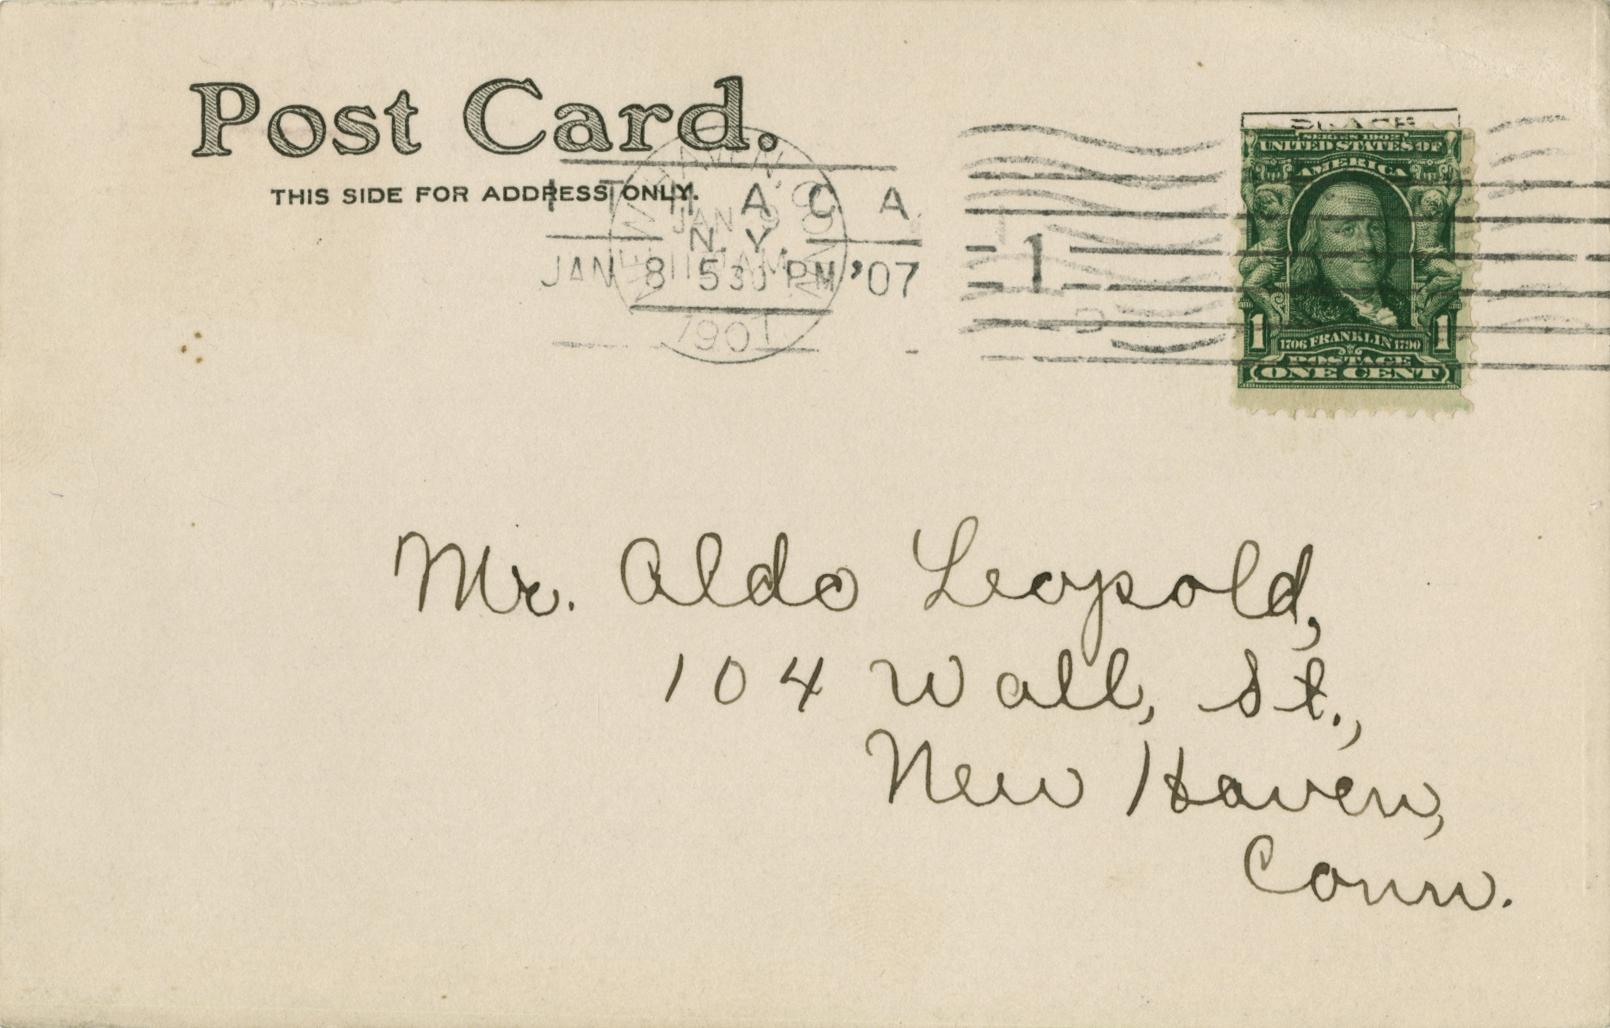 Post Card.
THIS SIDE FOR ADDRESS ONLY.
ITHACA
N.Y.
JAN 8 530 PM '07
JAN 9
1907
1
PLACE
SERIES 1902
UNITED STATES OF
AMERICA
1 1
1706 FRANKLIN 1790
POSTAGE
ONE CENT
Mr. Aldo Leopold,
104 Wall, St.,
New Haven,
Conn.